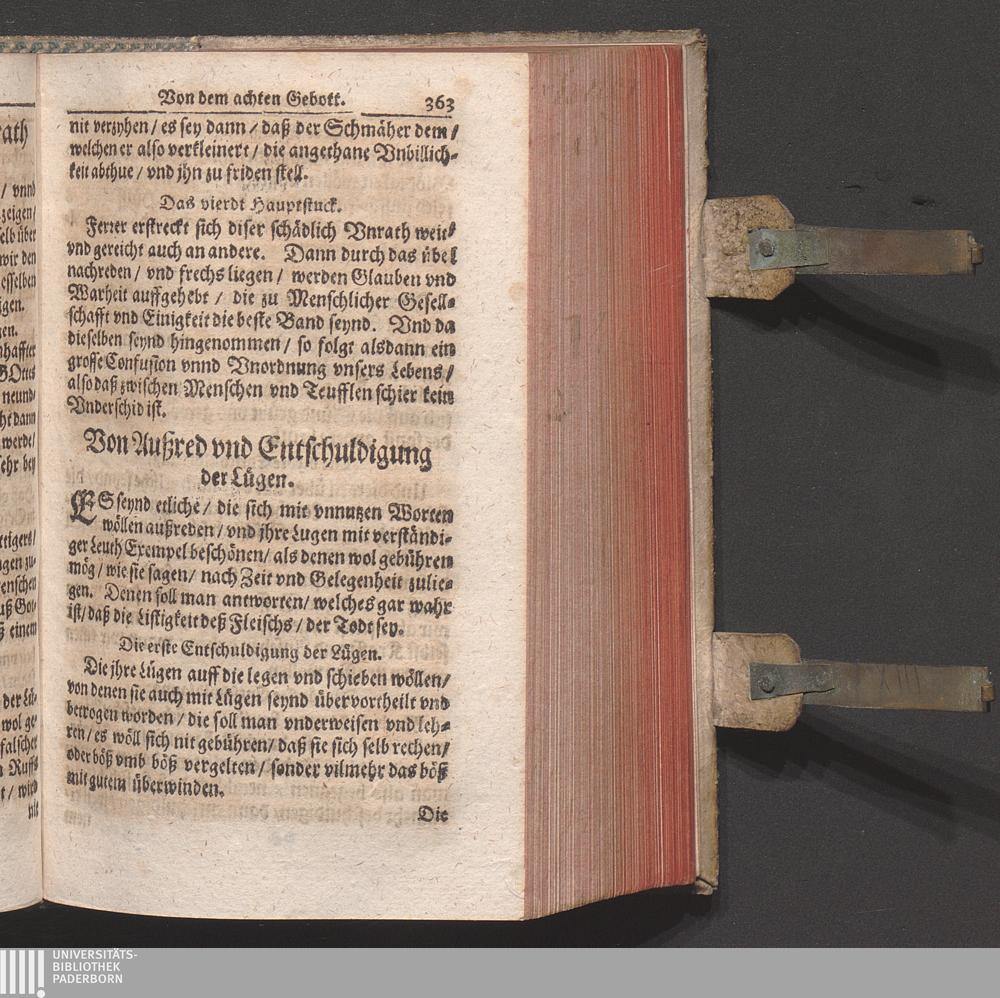 ath
/ vnnd
zeigen/
selb über
wir den
esselben
gen.
en.
nhaffter
GOttes
neund-
ht dann
werde/
sehr bey
ttigers/
gen zu-
enschen
uß Got-
ß einem
der Lü-
wol ge-
falscher
n Ruffs
t / wird
nit
Von dem achten Gebott. 363
nit verzyhen / es sey dann / daß der Schmäher dem /
welchen er also verkleinert / die angethane Vnbillich-
keit abthue / vnd jhn zu friden stell.
Das vierdt Hauptstuck.
Ferrer erstreckt sich diser schädlich Vnrath weit/
vnd gereicht auch an andere. Dann durch das übel
nachreden / vnd frechs liegen / werden Glauben vnd
Warheit auffgehebt / die zu Menschlicher Gesell-
schafft vnd Einigkeit die beste Band seynd. Vnd da
dieselben seynd hingenommen / so folgt alsdann ein
grosse Confusion vnnd Vnordnung vnsers Lebens /
also daß zwischen Menschen vnd Teufflen schier kein
Vnderschid ist.
Von Außred vnd Entschuldigung
der Lügen.
ES seynd etliche / die sich mit vnnutzen Worten
wöllen außreden / vnd jhre Lugen mit verständi-
ger Leuth Exempel beschönen / als denen wol gebühren
mög / wie sie sagen / nach Zeit vnd Gelegenheit zulie-
gen. Denen soll man antworten / welches gar wahr
ist / daß die Listigkeit deß Fleischs / der Todt sey.
Die erste Entschuldigung der Lügen.
Die jhre Lügen auff die legen vnd schieben wöllen /
von denen sie auch mit Lügen seynd übervortheilt vnd
betrogen worden / die soll man vnderweisen vnd leh-
ren / es wöll sich nit gebühren / daß sie sich selb rechen /
oder böß vmb böß vergelten / sonder vilmehr das böß
mit gutem überwinden.
Die
UNIVERSITÄTS-
BIBLIOTHEK
PADERBORN